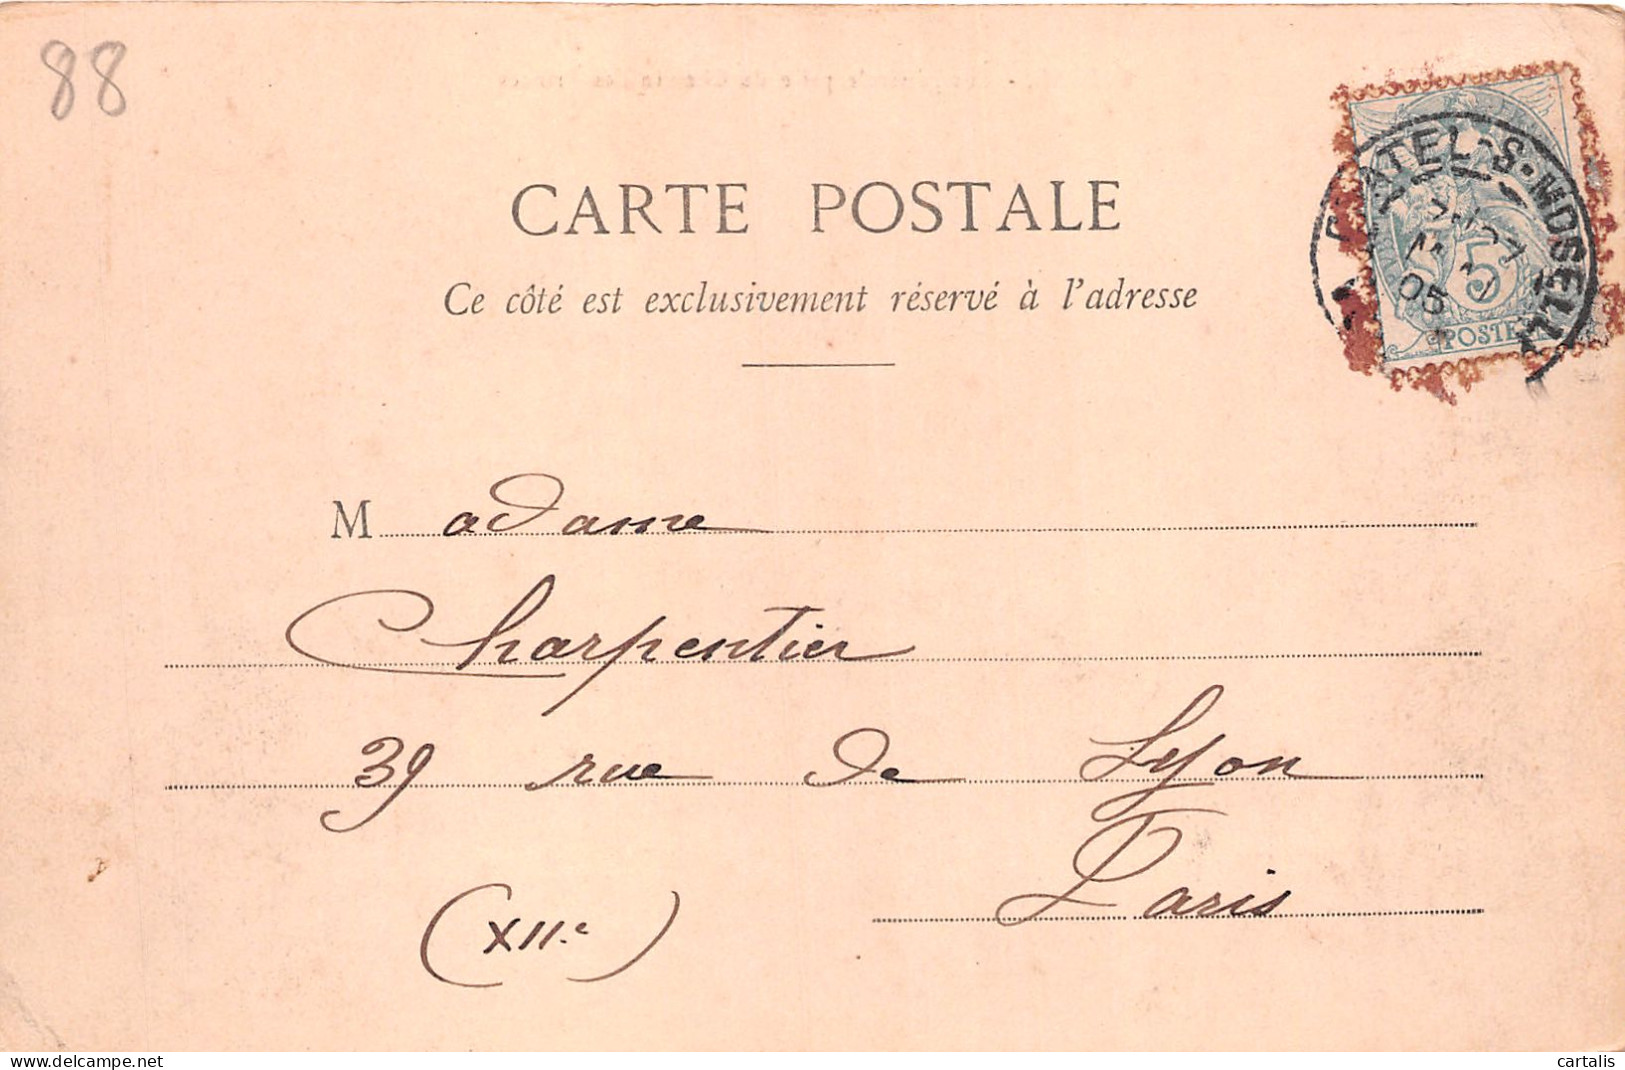 88
CARTE POSTALE
Ce côté est exclusivement réservé à l'adresse
CHATEL-S-MOSELLE
05
5
POSTES
M adame
Charpentier
39 rue de Lyon
Paris
(XIIe)
cartalis